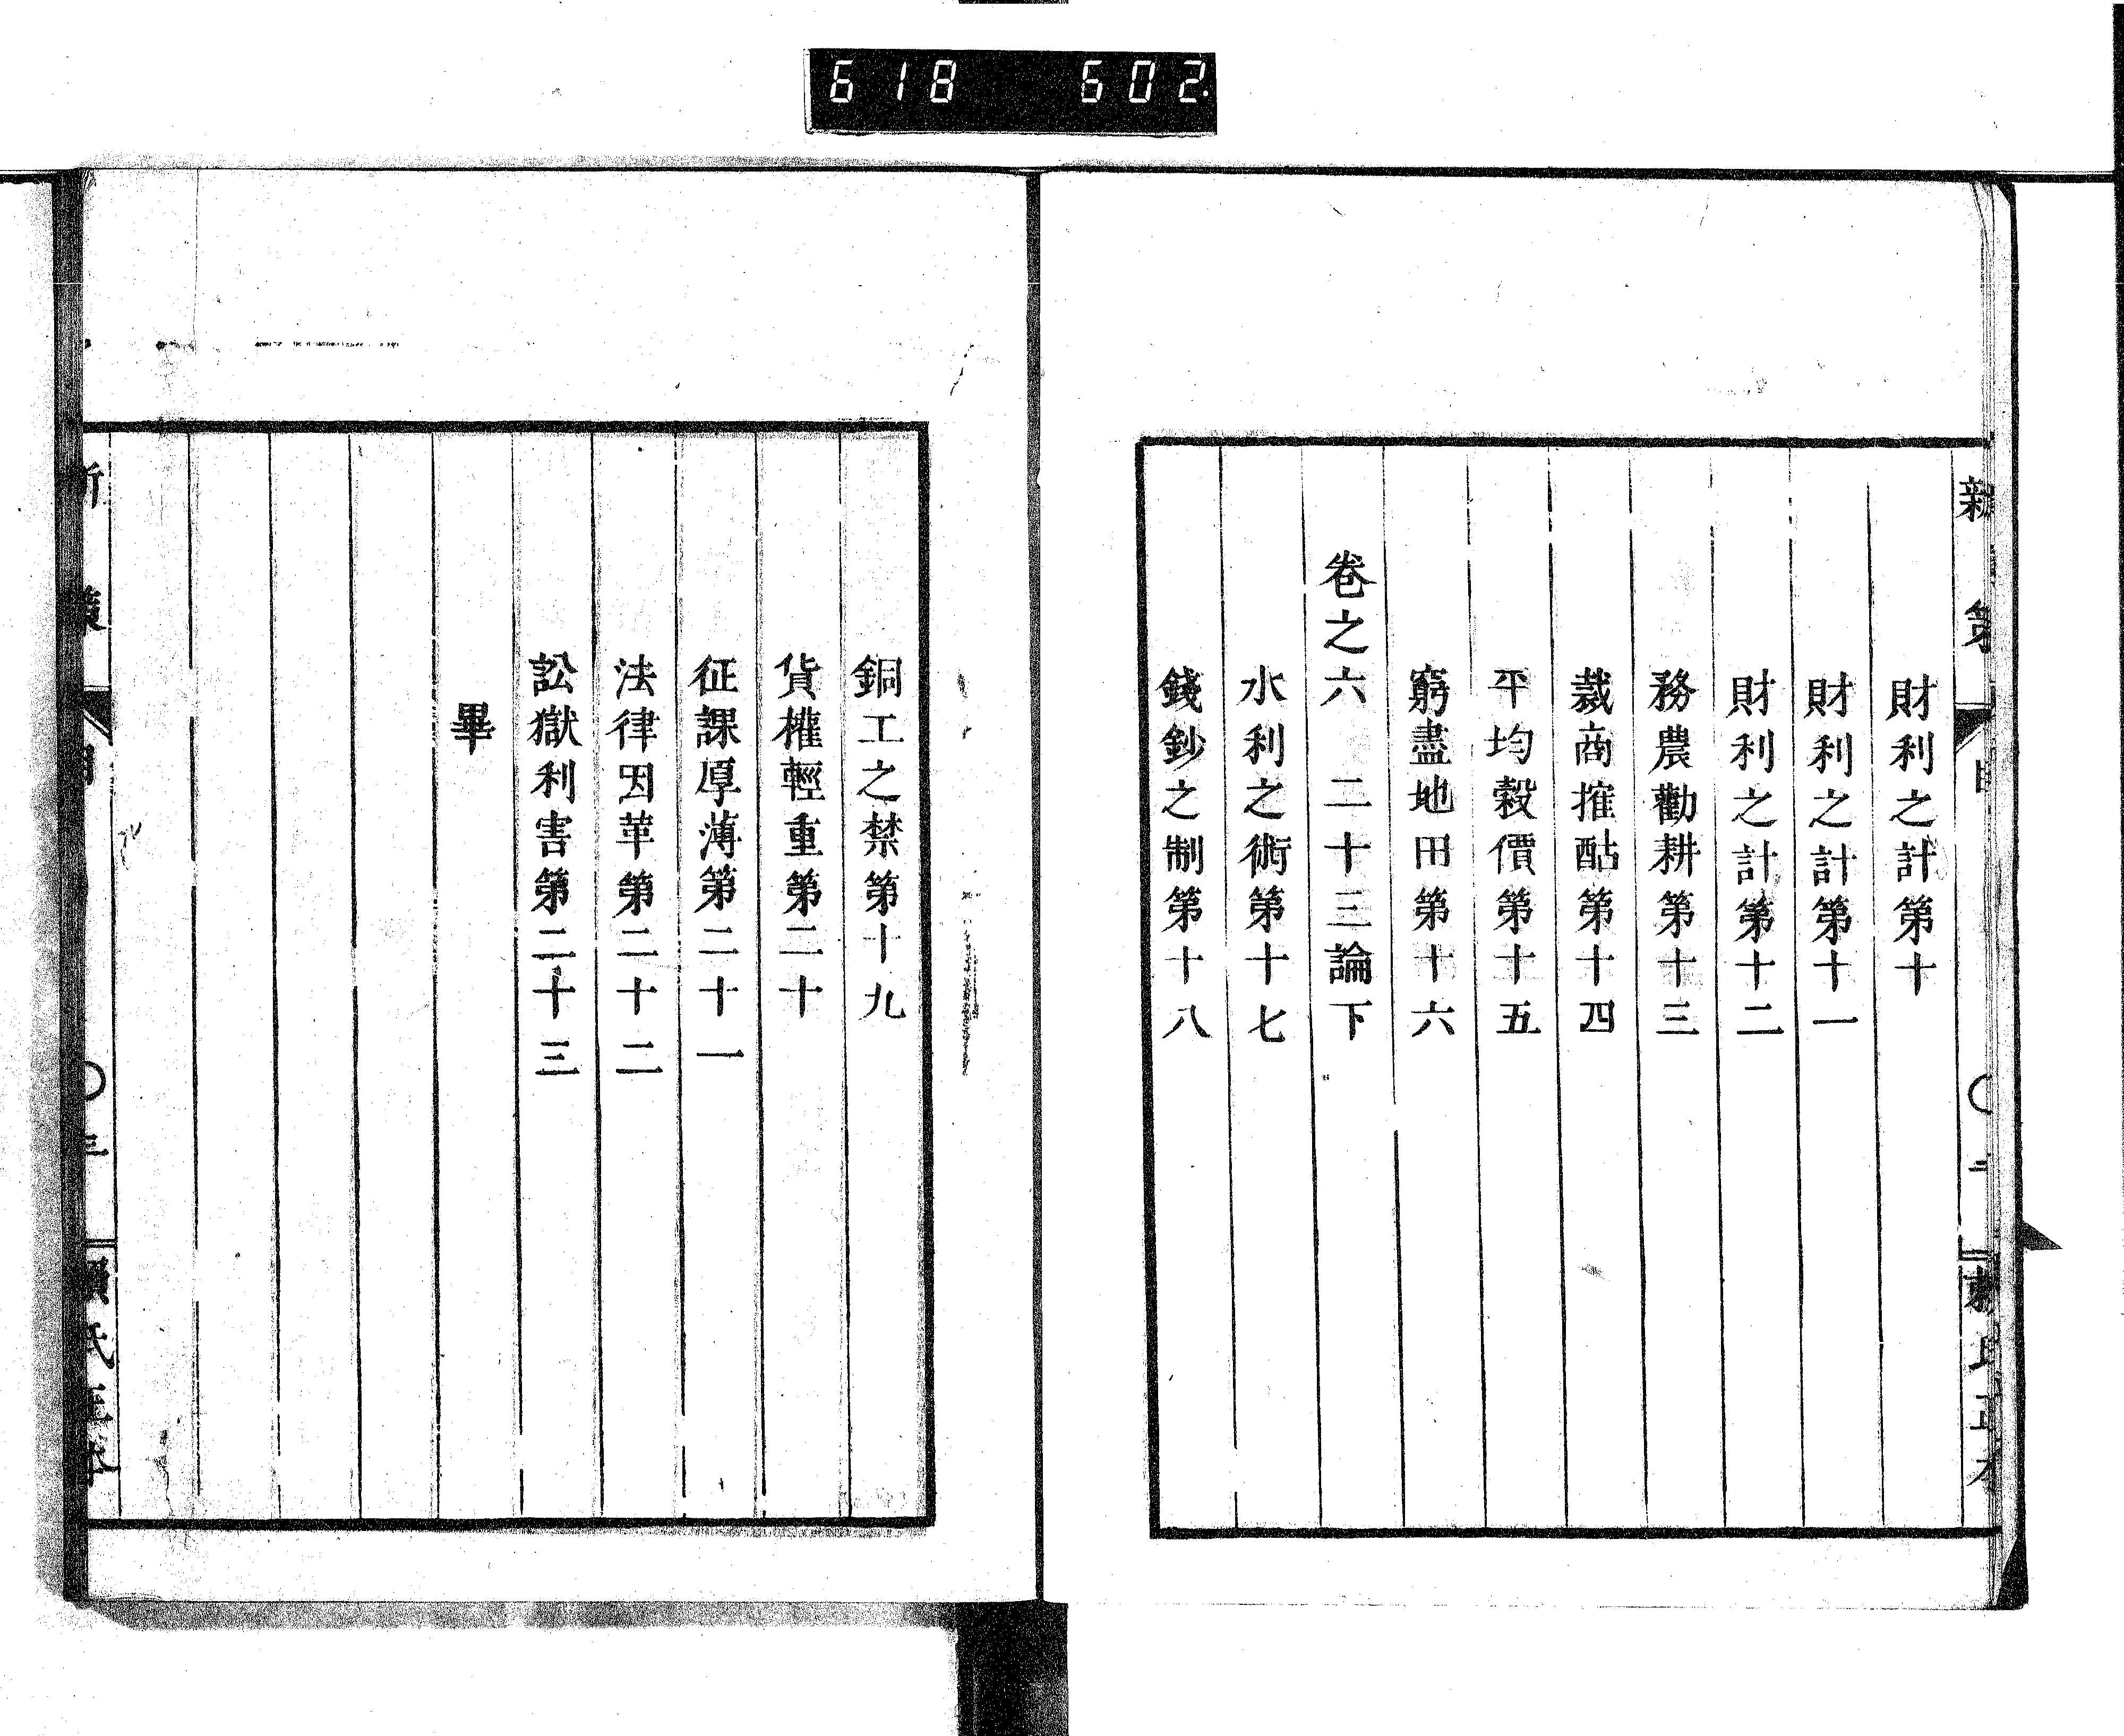 618 602
財利之計第十
財利之計第十一
財利之計第十二
務農勸耕第十三
裁商搉酤第十四
平均穀價第十五
窮盡地田第十六
卷之六 二十三論下
水利之術第十七
錢鈔之制第十八
銅工之禁第十九
貨權輕重第二十
征課厚薄第二十一
法律因革第二十二
訟獄利害第二十三
畢